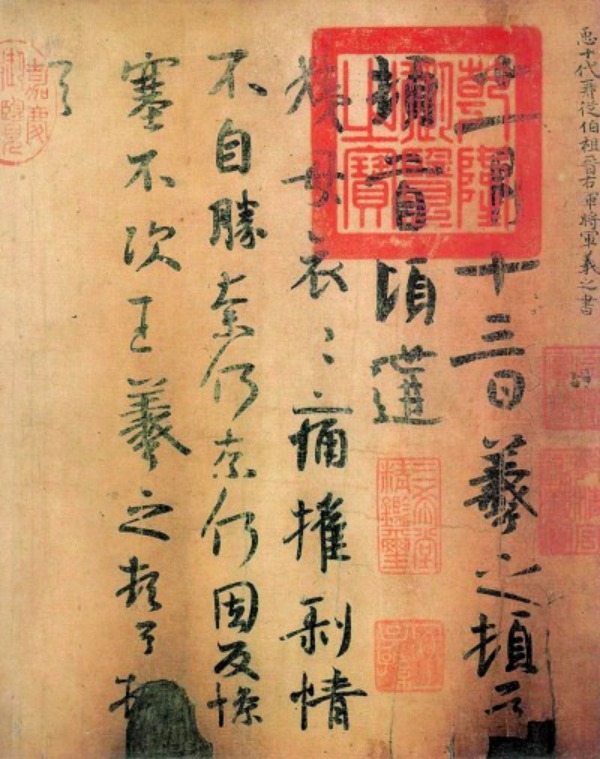 臣十代再從伯祖晉右軍將軍羲之書
十一月十三日羲之頓首
頓首頃遘
姨母哀〻痛摧剝情
不自勝奈何奈何因反慘
塞不次王羲之頓首頓
首
乾隆御覽之寶
三希堂精鑑璽
宜子孫
嘉慶御覽